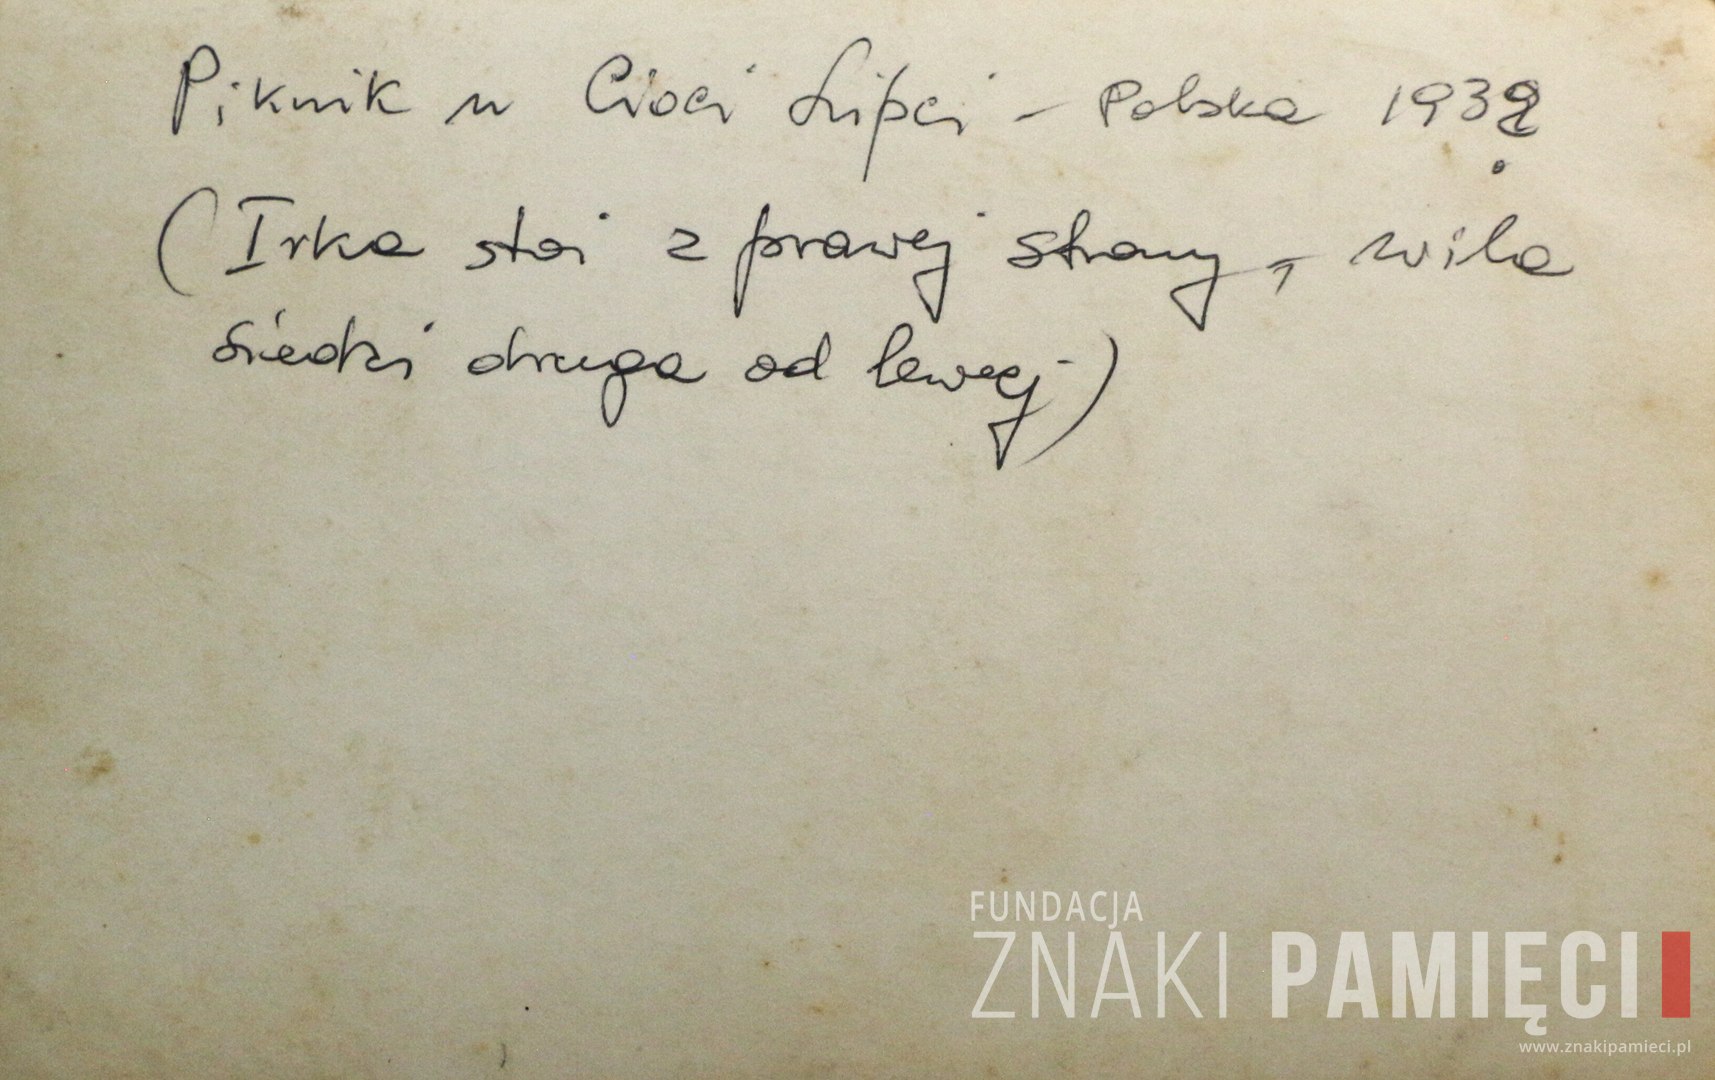 Piknik u Cioci Lipci – Polska 1932
(Irka stoi z prawej strony, wila
siedzi druga od lewej)
FUNDACJA
ZNAKI PAMIĘCI
www.znakipamieci.pl